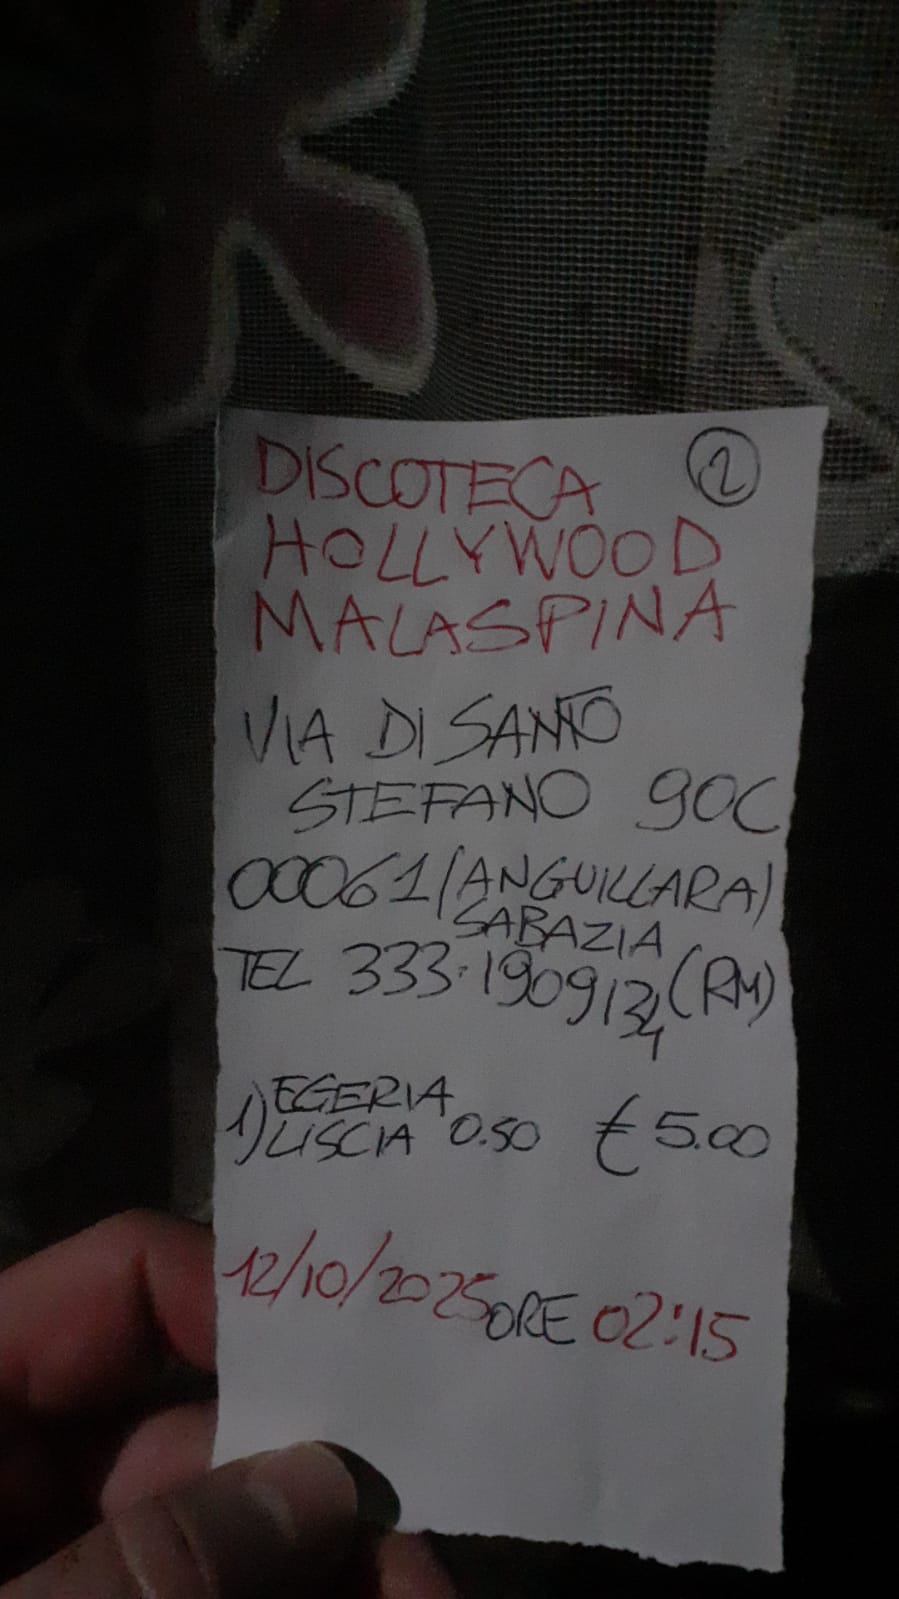 DISCOTECA 2
HOLLYWOOD
MALASPINA
VIA DI SANTO
STEFANO 90C
00061 (ANGUILLARA)
SABAZIA
TEL 333.1909134 (RM)
1) EGERIA
LISCIA 0.50 € 5.00
12/10/2025 ORE 02:15